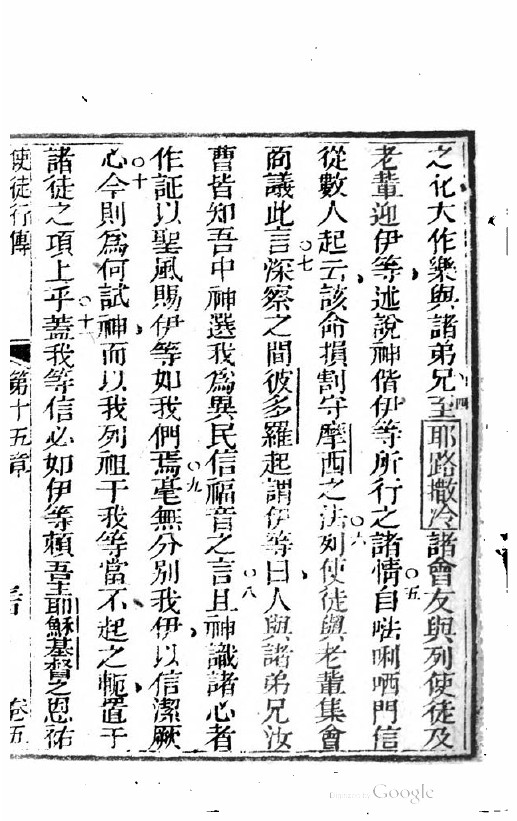 之化大作樂與諸弟兄○四至耶路撒冷諸會友與列使徒及
老輩迎伊等述說神偕伊等所行之諸情○五自𠵽唎哂門信
從數人起云該命損割守摩西之法○六列使徒與老輩集會
商議此言○七深察之間彼多羅起謂伊等曰人與諸弟兄汝
曹皆知吾中神選我為異民信福音之言且○八神識諸心者
作証以聖風賜伊等如我們焉○九毫無分別我伊以信潔厥
心○十今則為何試神而以我列祖于我等當不起之軛置于
諸徒之項上乎○十一蓋我等信必如伊等賴吾主耶穌基督之恩祐
使徒行傳 第十五章 卷五
Digitized by Google